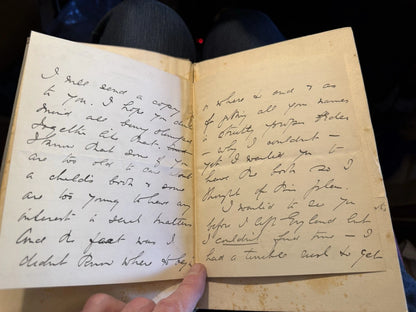 I will send a copy
to you. I hope you don't
mind all being clumped
together like that. 
I know that some of you
are too old to care about
a child's book & some
are too young to have any
interest in such matters
And the fact was I
didn't know where to begin
& where to end & as
for putting all your names
a
— why I wouldn't —
yet I wanted you to
have the book so I
thought of this plan.
I wanted to see you
before I left England but
I couldn't find time — I
had a terrible rush to get